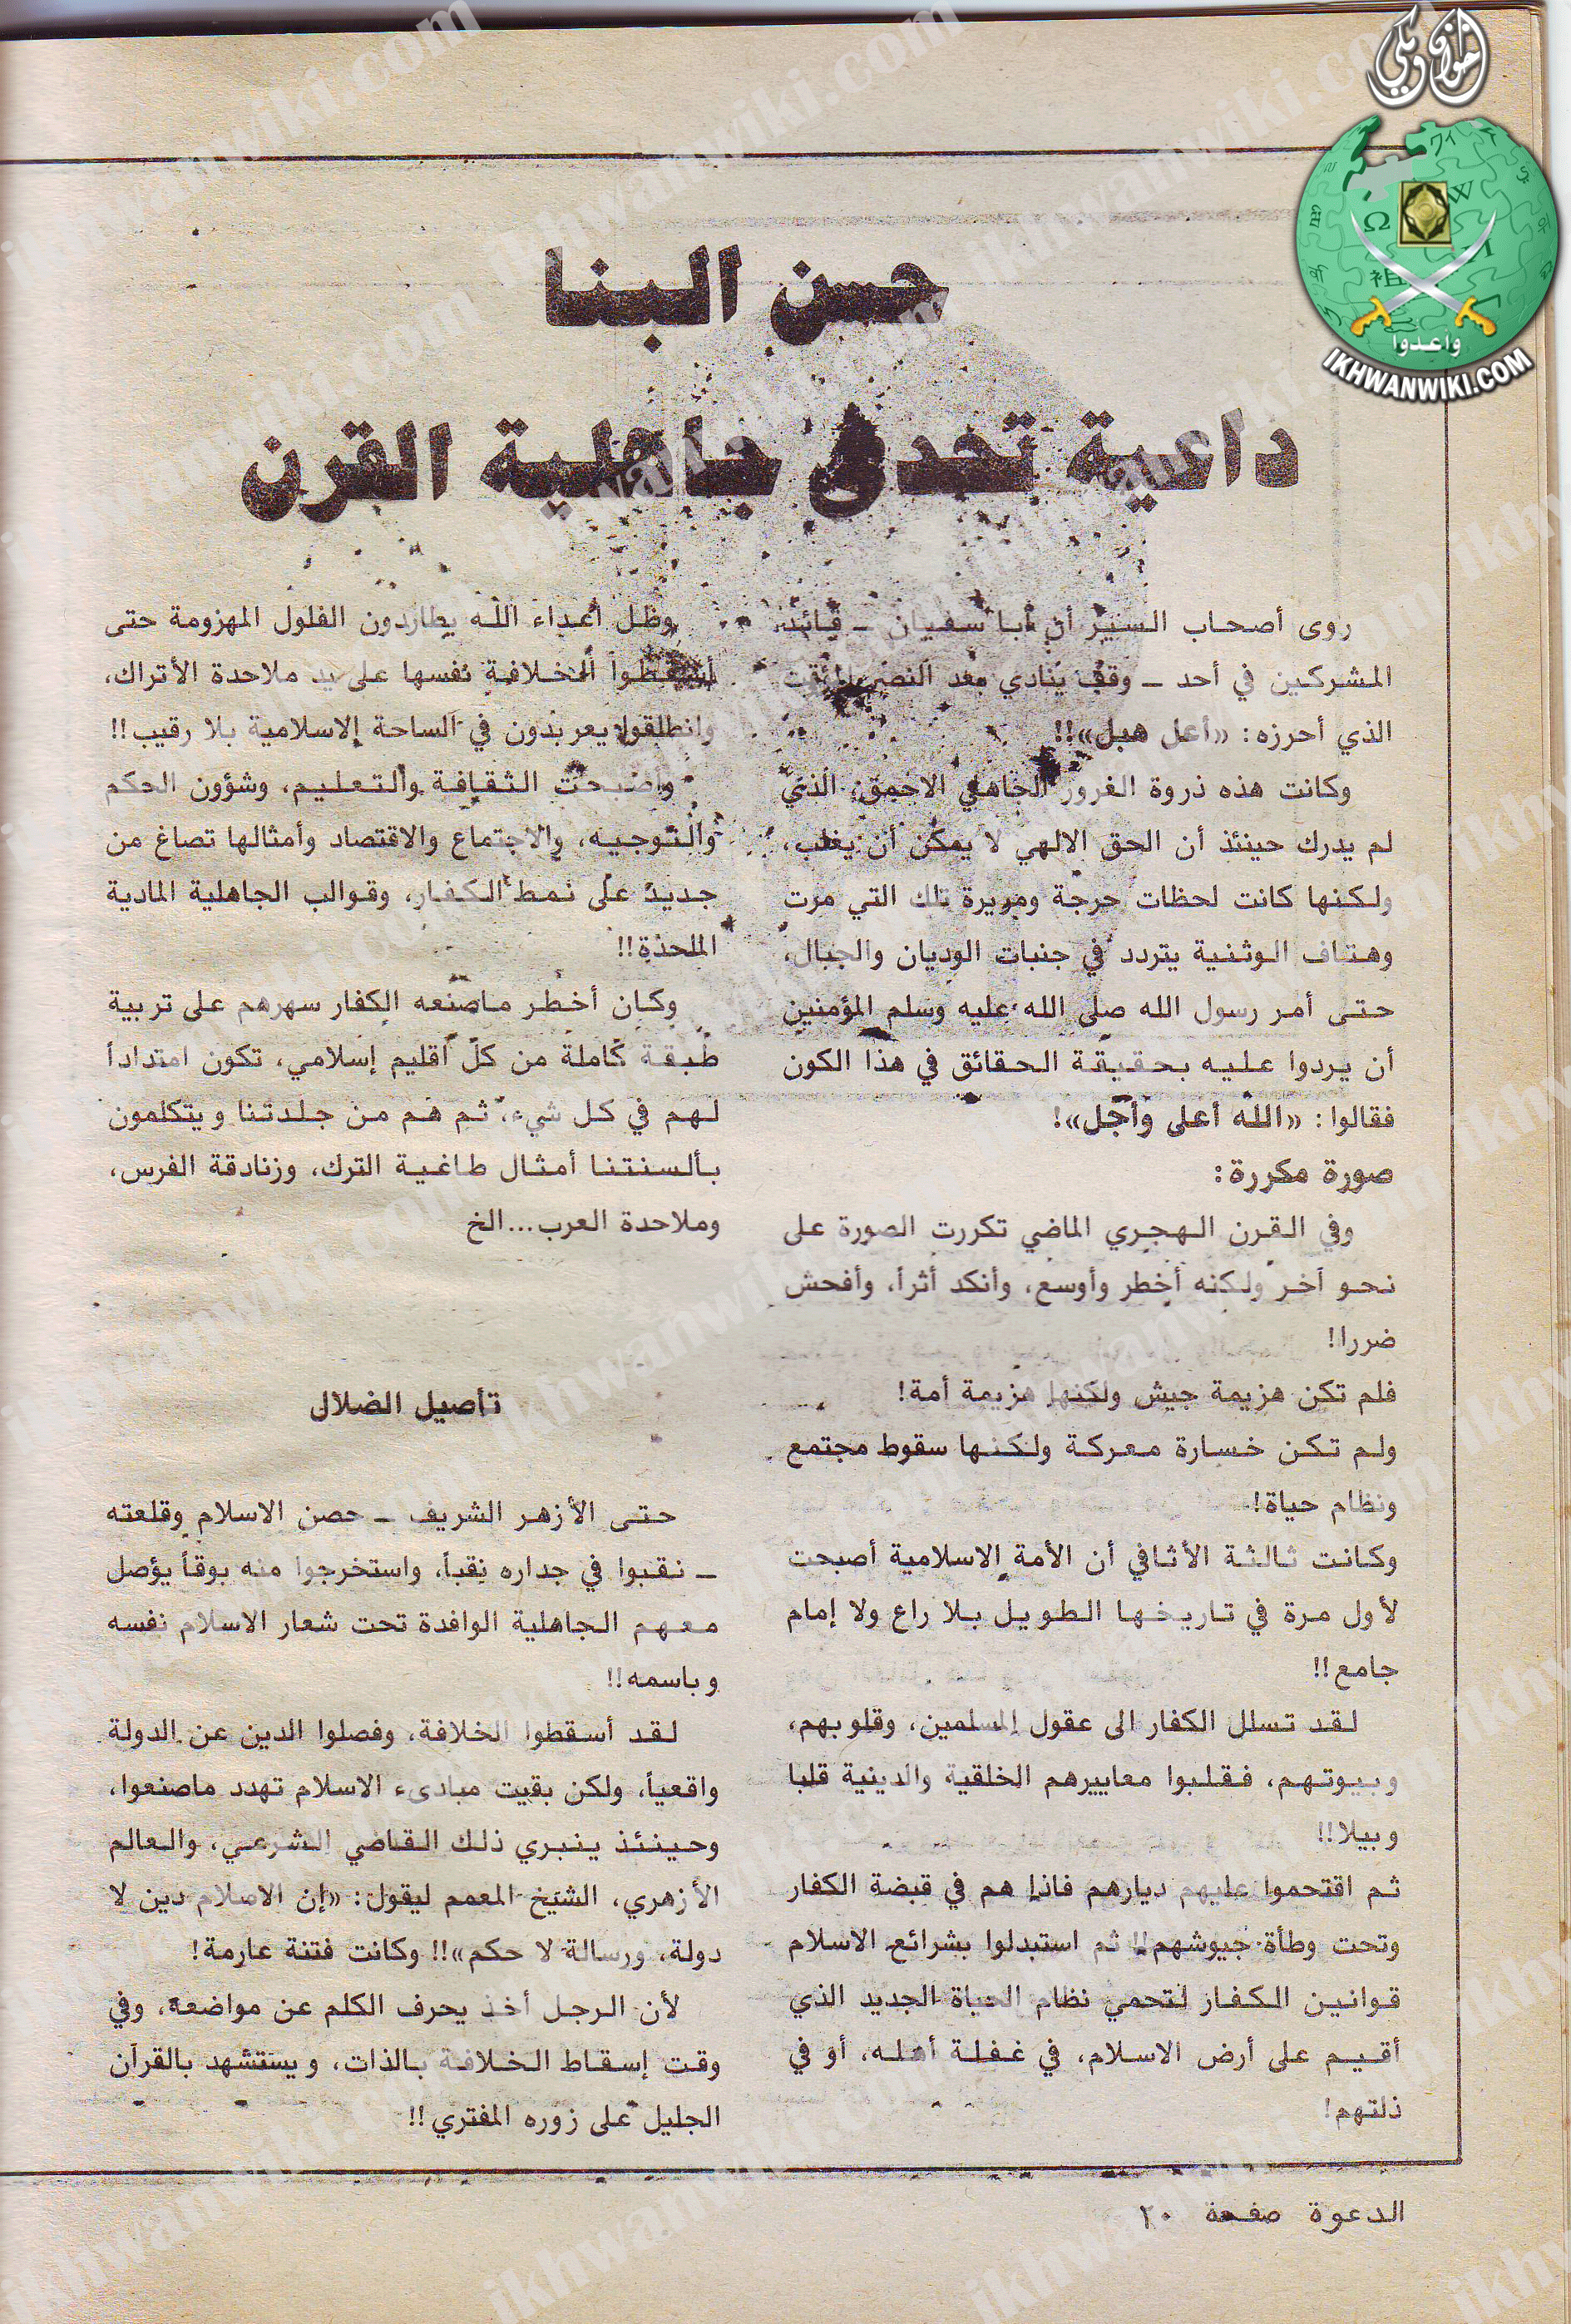 حسن البنا
داعية تحدى جاهلية القرن
روى أصحاب السير أن أبا سفيان ــ قائد
المشركين في أحد ــ وقف ينادي بعد النصر المؤقت
الذي أحرزه: «أعل هبل»!!
وكانت هذه ذروة الغرور الجاهلي الاحمق، الذي
لم يدرك حينئذ أن الحق الالهي لا يمكن أن يغلب،
ولكنها كانت لحظات حرجة ومريرة تلك التي مرت
وهتاف الوثنية يتردد في جنبات الوديان والجبال،
حتى أمر رسول الله صلى الله عليه وسلم المؤمنين
أن يردوا عليه بحقيقة الحقائق في هذا الكون
فقالوا: «الله أعلى وأجل»!
صورة مكررة:
وفي القرن الهجري الماضي تكررت الصورة على
نحو آخر ولكنه أخطر وأوسع، وأنكد أثراً، وأفحش
ضررا!
فلم تكن هزيمة جيش ولكنها هزيمة أمة!
ولم تكن خسارة معركة ولكنها سقوط مجتمع
ونظام حياة!
وكانت ثالثة الأثافي أن الأمة الاسلامية أصبحت
لأول مرة في تاريخها الطويل بلا راع ولا إمام
جامع!!
لقد تسلل الكفار الى عقول المسلمين، وقلوبهم،
وبيوتهم، فقلبوا معاييرهم الخلقية والدينية قلبا
وبيلا!!
ثم اقتحموا عليهم ديارهم فاذا هم في قبضة الكفار
وتحت وطأة جيوشهم!! ثم استبدلوا بشرائع الاسلام
قوانين الكفار لتحمي نظام الحياة الجديد الذي
أقيم على أرض الاسلام، في غفلة أهله، أو في
ذلتهم!
وظل أعداء الله يطاردون الفلول المهزومة حتى
أسقطوا الخلافة نفسها على يد ملاحدة الأتراك،
وانطلقوا يعربدون في الساحة الاسلامية بلا رقيب!!
وأصبحت الثقافة والتعليم، وشؤون الحكم
والتوجيه، والاجتماع والاقتصاد وأمثالها تصاغ من
جديد على نمط الكفار، وقوالب الجاهلية المادية
الملحدة!!
وكان أخطر ماصنعه الكفار سهرهم على تربية
طبقة كاملة من كل اقليم إسلامي، تكون امتدادأ
لهم في كل شيء، ثم هم من جلدتنا ويتكلمون
بألسنتنا أمثال طاغية الترك، وزنادقة الفرس،
وملاحدة العرب...الخ
تأصيل الضلال
حتى الأزهر الشريف ــ حصن الاسلام وقلعته
ــ نقبوا في جداره نقباً، واستخرجوا منه بوقاً يؤصل
معهم الجاهلية الوافدة تحت شعار الاسلام نفسه
وباسمه!!
لقد أسقطوا الخلافة، وفصلوا الدين عن الدولة
واقعياً، ولكن بقيت مبادىء الاسلام تهدد ماصنعوا،
وحينئذ ينبري ذلك القاضي الشرعي، والعالم
الأزهري، الشيخ المعمم ليقول: «إن الاسلام دين لا
دولة، ورسالة لا حكم»!! وكانت فتنة عارمة!
لأن الرجل أخذ يحرف الكلم عن مواضعه، وفي
وقت إسقاط الخلافة بالذات، ويستشهد بالقرآن
الجليل على زوره المفتري!!
الدعوة صفحة ٢٠
اخوان ويكي
وأعدوا
IKHWANWIKI.COM